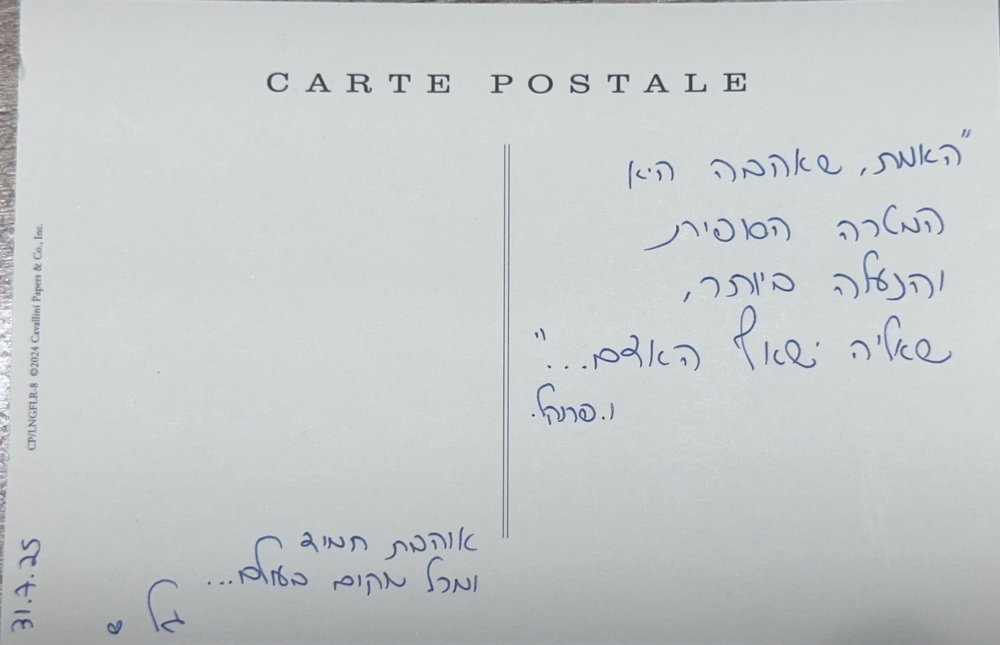 CARTE POSTALE
"האמת, שאהבה היא
המטרה הסופית
והנעלה ביותר,
שאליה ישאף האדם..."
ו. פרנקל.
אוהבת תמיד
ומכל מקום בעולם...
גל ♥
31.7.25
CP/LNGFLR-8 ©2024 Cavallini Papers & Co., Inc.